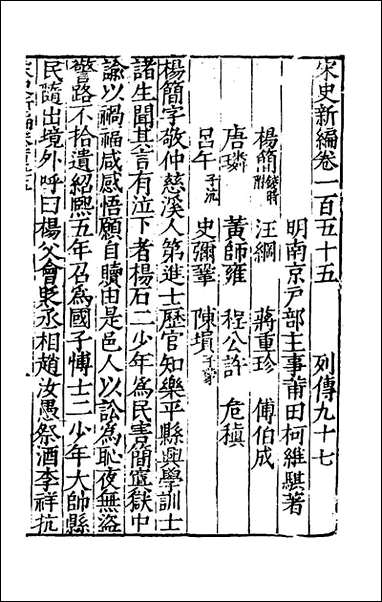 宋史新編卷一百五十五　列傳九十七
明南京戸部主事莆田柯維騏著
楊簡錢時附　汪綱　蔣重珍　傅伯成
唐璘　黃師雍　程公許　危稹
呂午子沆　史彌鞏　陳塤子蒙
楊簡字敬仲慈溪人第進士歷官知樂平縣興學訓士
諸生聞其言有泣下者楊石二少年為民害簡寘獄中
諭以禍福咸感悟願自贖由是邑人以訟為恥夜無盜
警路不拾遺紹熙五年召為國子愽士二少年大帥縣
民隨出境外呼曰楊父會丞相趙汝愚祭酒李祥抗